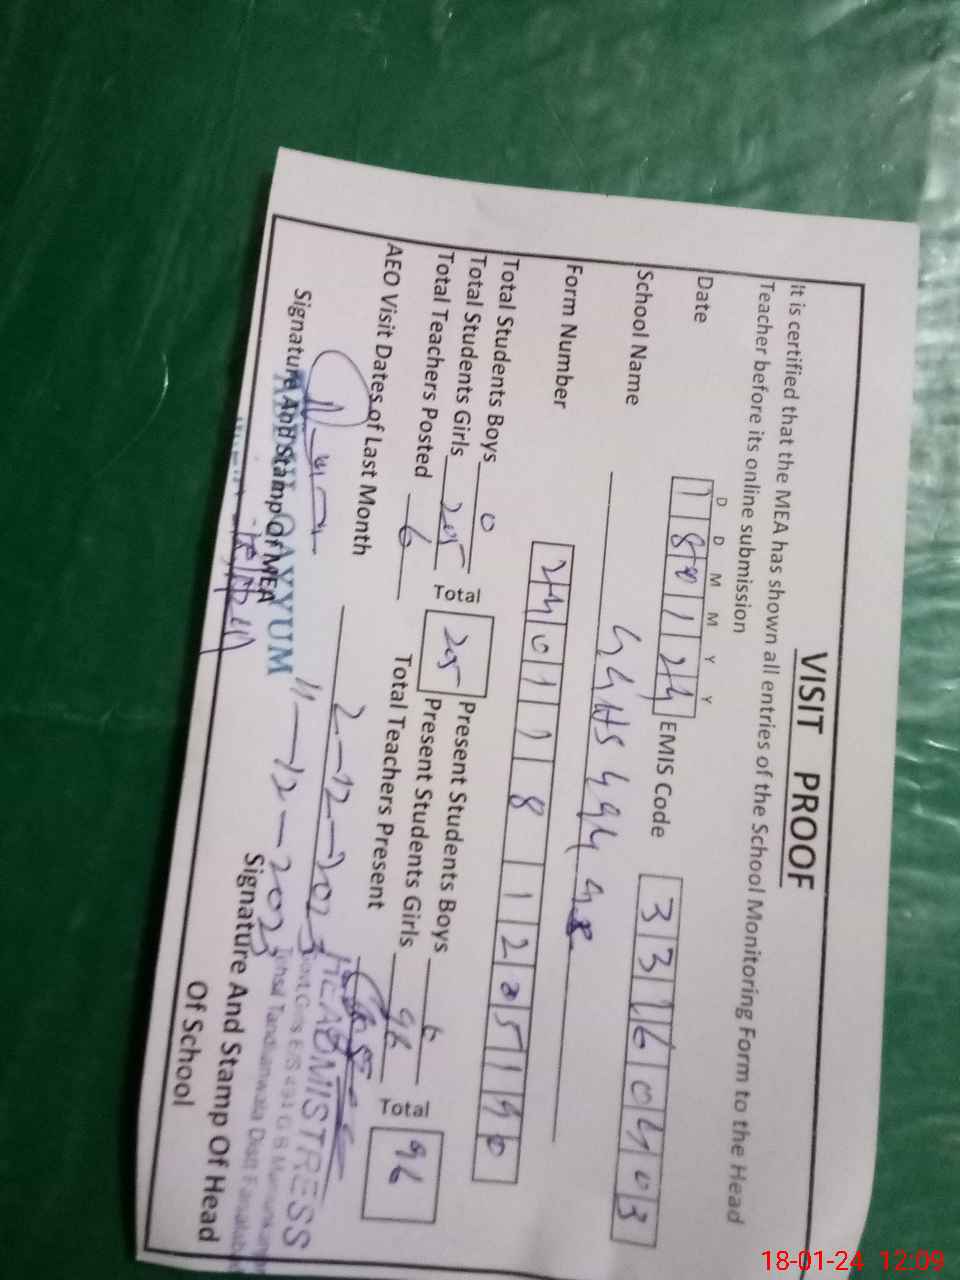 VISIT PROOF
It is certified that the MEA has shown all entries of the School Monitoring Form to the Head
Teacher before its online submission
D D M M Y Y
Date 180124 EMIS Code 33160403
School Name GGHS 494 GB
Form Number 240118120519 0
Total Students Boys 0 Present Students Boys
Total Students Girls 205 Total 205 Present Students Girls 96 Total 96
Total Teachers Posted 6 Total Teachers Present
AEO Visit Dates of Last Month 2-12-2023
11-12-2023
Signature And Stamp Of MEA
QAYYUM
Signature And Stamp Of Head
Of School
HEADMISTRESS
Govt. Girls E/S 494 G.B
Tehsil Tandlianwala Distt Faisalabad
18-01-24 12:09